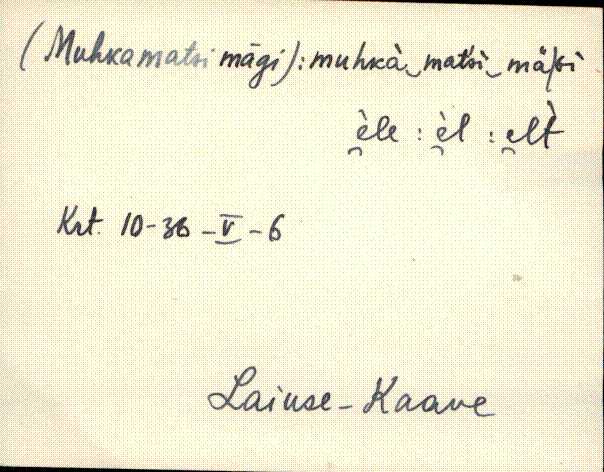 (Muhkamatsi mägi): muhkà matsì mä/sì
èle : èl : elt̀
Krt. 10-36-V-6
Laiuse-Kaave